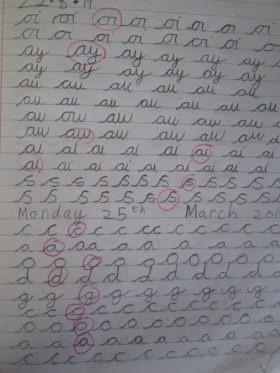 oi oi oi oi oi oi oi oi
oi oi oi oi oi oi oi oi
ay ay ay ay ay ay ay
ay ay ay ay ay ay
au au au au au au
au au au au au au au
aw aw aw aw aw aw
aw aw aw aw aw aw
ai ai ai ai ai ai ai
ai ai ai ai ai ai ai ai
s s s s s s s s s s
s s s s s s s s s s
Monday 25th March 201
c c c c cc c c c c
a a a a a a a a a
o o o o o o o o o o
d d d d d d d d d
g g g g g g g g g
c c c c c c c c c c
o o o o o o o o o o
a a a a a a a a a
c c c c c c c c c c